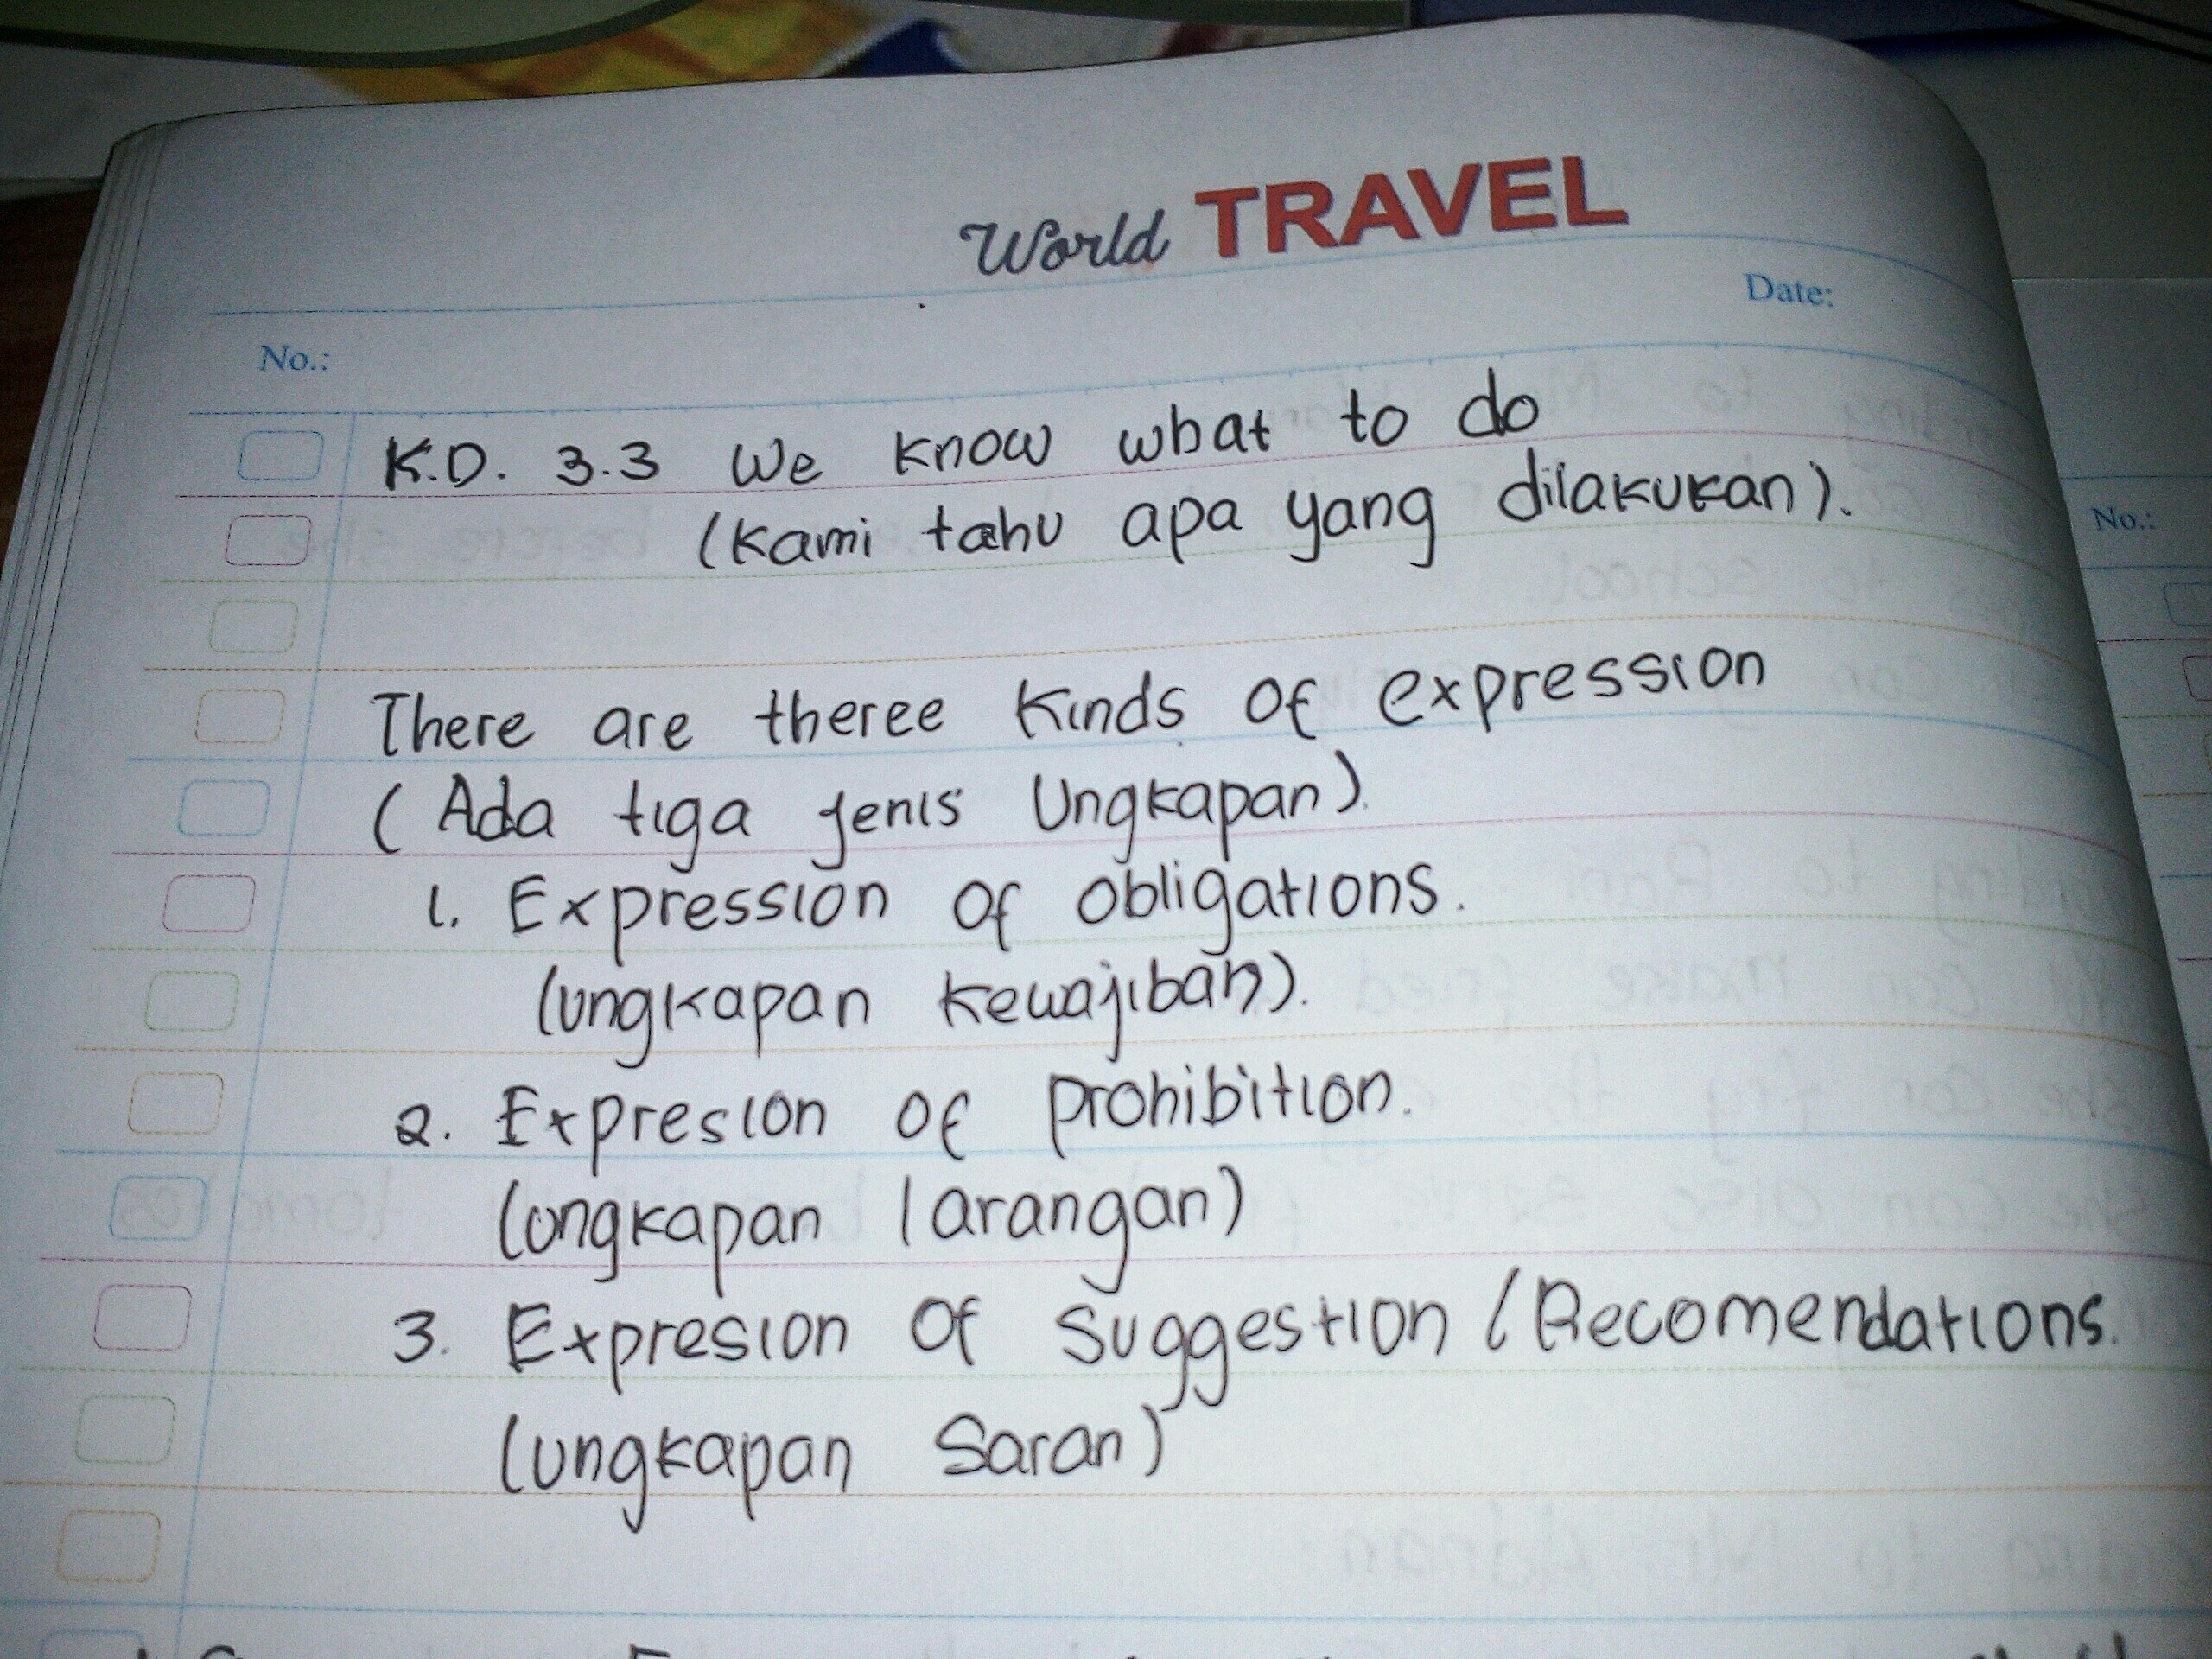 World TRAVEL
Date:
No.:
K.D. 3.3 We know what to do
(Kami tahu apa yang dilakukan).
There are theree kinds of expression
(Ada tiga jenis Ungkapan).
1. Expression of obligations.
(ungkapan kewajiban).
2. Expresion of prohibition.
(ungkapan larangan)
3. Expresion of suggestion / Recomendations.
(ungkapan Saran)
No.: